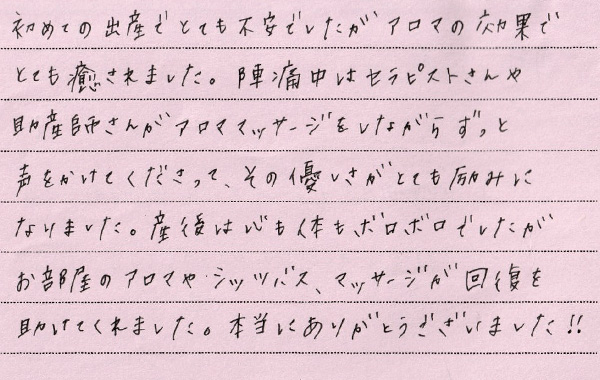 初めての出産でとても不安でしたがアロマの効果で
とても癒されました。陣痛中はセラピストさんや
助産師さんがアロママッサージをしながらずっと
声をかけてくださって、その優しさがとても励みに
なりました。産後は心も体もボロボロでしたが
お部屋のアロマや・シッツバス、マッサージが回復を
助けてくれました。本当にありがとうございました!!